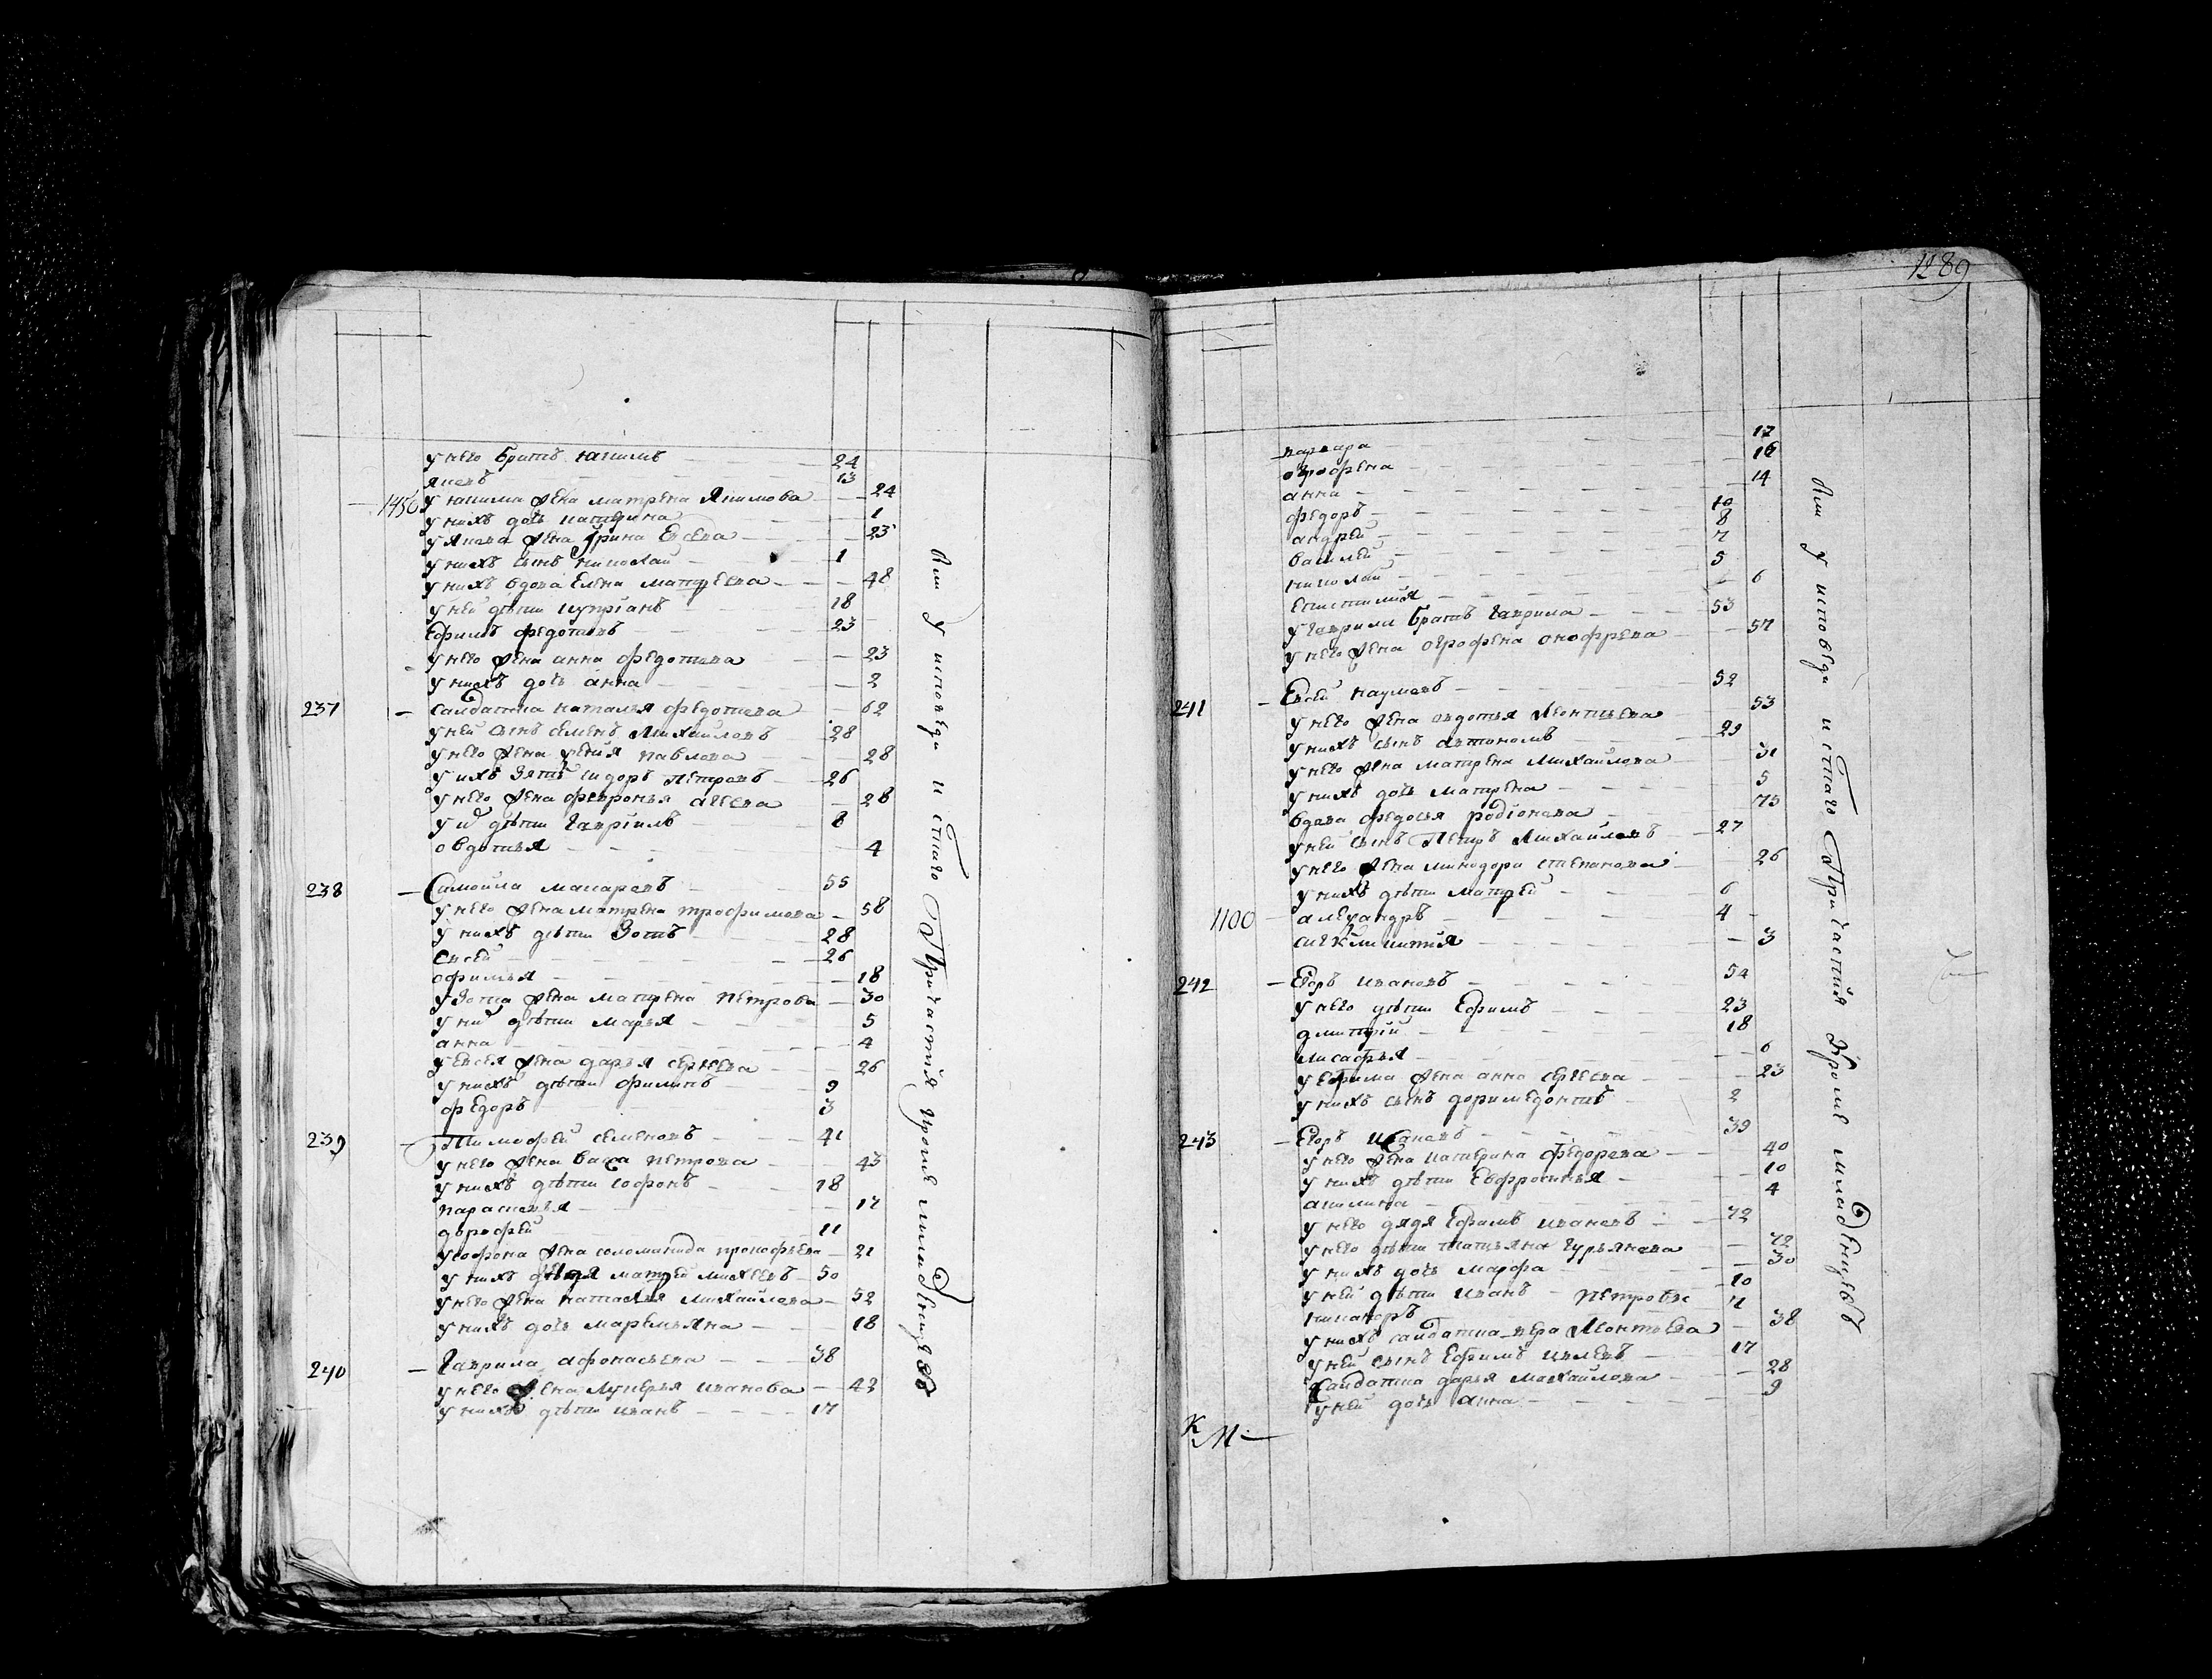 у него братъ якимъ 24
яковъ 13
1456 у якима жена матрена Якимова 24
у нихъ дочь катерина 1
у Якова жена Ирина Евсева 23
у нихъ сынъ николай 1
у нихъ вдова Елена матвеева 48
у ней дѣти купріянъ 18
Ефимъ федотовъ 23
у него жена анна федотова 23
у нихъ дочь анна 2
237 салдатка наталья федотова 62
у ней сынъ семенъ Михайловъ 28
у него жена павлова 28
у ихъ зять сидоръ петровъ 26
у него жена февронья агеева 28
у и дѣти гавріилъ 8
овдотья 4
238 Самойла макаровъ 55
у него жена матрена трофимова 58
у нихъ дѣти Зотъ 28
Евсей 26
офимья 18
у Зота жена матрена петрова 30
у ни дѣти марья 5
анна 4
у Евсея жена дарья сергеева 26
у нихъ дѣти филипъ 9
федоръ 3
239 Тимофей семеновъ 41
у него жена васа петрова 43
у нихъ дѣти софонъ 18
парасковья 12
дорофей 11
у софона жена соломанида прокофьева 21
у нихъ дядя матвей михеевъ 50
у него жена наталья михайлова 52
у нихъ дочь маремьяна 18
240 Гаврила афонасьевъ 38
у него жена Лукерья иванова 42
у нихъ дѣти иванъ 17
Км у исповеди и стаго Причастия кроме младенцевъ
1289
варвара 17
огрофена 16
анна 14
федоръ 10
андрей 8
василей 7
николай 5
Епистимия 6
у гаврили братъ гаврила 53
у него жена огрофена онофрева 57
241 Евсей наумовъ 52
у него жена овдотья Леонтьева 53
у нихъ сынъ автономъ 29
у него жена матрена михайлова 31
у нихъ дочь матрена 5
вдова федосья родіонова 75
у ней сынъ Петръ Михайловъ 27
у него жена минодора степанова 26
у нихъ дѣти матвей 6
1100 алеѯандръ 4
3
242 Егоръ ивановъ 54
у него дѣти Ефимъ 23
дмитрій 18
лисафья 6
у Ефима жена анна сергеева 23
у нихъ сынъ доримедонтъ 2
243 Егоръ Ивановъ 39
у него жена катерина федорова 40
у нихъ дѣти Евфросинья 10
акилина 4
у него дядя Ефимъ ивановъ 72
у него дѣти татьяна гурьянова 72
у нихъ дочь марфа 30
у ней дѣти иванъ петровы 10
никаноръ 7
у нихъ салдатка вера Леонтьева 38
у ней сынъ Ефимъ 17
салдатка дарья михайлова 28
у ней дочь анна 9
Км у исповеди и стаго Причастия кроме младенцевъ
К М